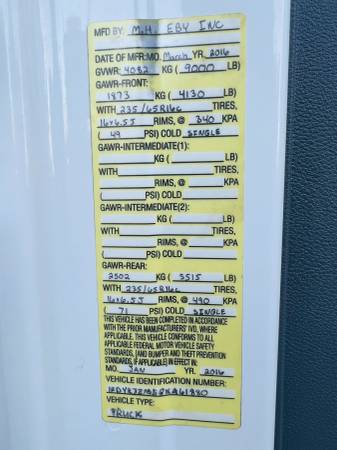 MFD BY: M.H. EBY INC
DATE OF MFR:MO. March YR. 2016
GVWR: 4082 KG ( 9000 LB)
GAWR-FRONT:
1873 KG ( 4130 LB)
WITH 235/65R16C TIRES,
16x6.5J RIMS, @ 340 KPA
( 49 PSI) COLD SINGLE
GAWR-INTERMEDIATE(1):
KG ( LB)
WITH TIRES,
RIMS, @ KPA
( PSI) COLD
GAWR-INTERMEDIATE(2):
KG ( LB)
WITH TIRES,
RIMS, @ KPA
( PSI) COLD
GAWR-REAR:
2502 KG ( 5515 LB)
WITH 235/65R16C TIRES,
16x6.5J RIMS, @ 490 KPA
( 71 PSI) COLD SINGLE
THIS VEHICLE HAS BEEN COMPLETED IN ACCORDANCE
WITH THE PRIOR MANUFACTURERS' IVD, WHERE
APPLICABLE. THIS VEHICLE CONFORMS TO ALL
APPLICABLE FEDERAL MOTOR VEHICLE SAFETY
STANDARDS, [AND BUMPER AND THEFT PREVENTION
STANDARDS, IF APPLICABLE] IN EFFECT IN:
MO. JAN YR. 2016
VEHICLE IDENTIFICATION NUMBER:
VEHICLE TYPE:
TRUCK